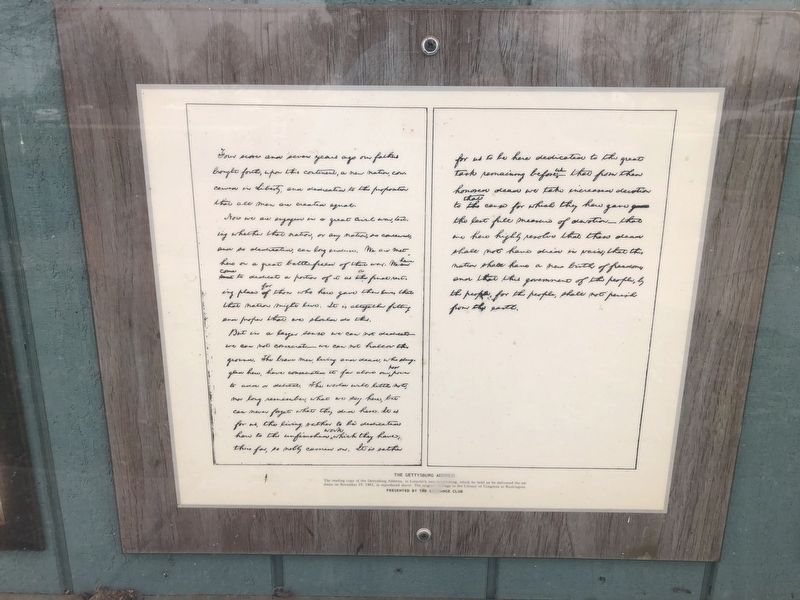 Four score and seven years ago our fathers
brought forth, upon this continent, a new nation, con
ceived in Liberty, and dedicated to the proposition
that all men are created equal.
Now we are engaged in a great civil war, test
ing whether that nation, or any nation, so conceived,
and so dedicated, can long endure. We are met
here on a great battle field of that war. We have
come to dedicate a portion of it as a final rest-
ing place for those who here gave their lives that
that nation might live. It is altogether fitting
and proper that we should do this.
But in a larger sense we can not dedicate—
we can not consecrate—we can not hallow this
ground. The brave men, living and dead, who strug-
gled here, have consecrated it far above our poor power
to add or detract. The world will little note,
nor long remember, what we say here, but
can never forget what they did here. It is
for us, the living, rather to be dedicated
here to the unfinished work which they have,
thus far, so nobly carried on. It is rather
for us to be here dedicated to the great
task remaining before us— that from these
honored dead we take increased devotion
to that cause for which they here gave
the last full measure of devotion— that
we here highly resolve that these dead
shall not have died in vain; that this
nation shall have a new birth of freedom;
and that this government of the people, by
the people, for the people, shall not perish
from the earth.
THE GETTYSBURG ADDRESS
The reading copy of the Gettysburg Address, in Lincoln's own handwriting, which he held as he delivered the ad
dress on November 19, 1863, is reproduced above. The original is in the Library of Congress in Washington.
PRESENTED BY THE EXCHANGE CLUB